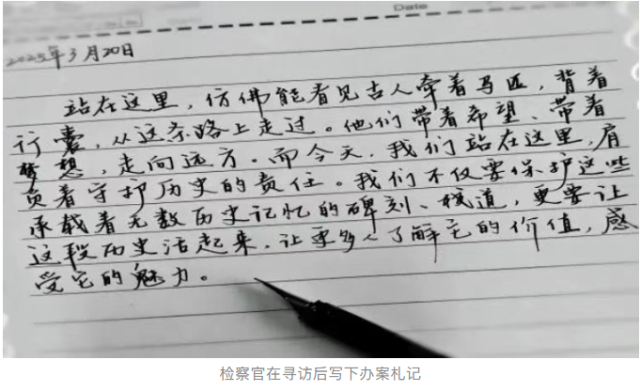 Date
2025年3月20日
站在这里，仿佛能看见古人牵着马匹，背着
行囊，从这条路上走过。他们带着希望、带着
梦想，走向远方。而今天，我们站在这里，肩
负着守护历史的责任。我们不仅要保护这些
承载着无数历史记忆的碑刻、栈道，更要让
这段历史活起来，让更多人了解它的价值，感
受它的魅力。
检察官在寻访后写下办案札记